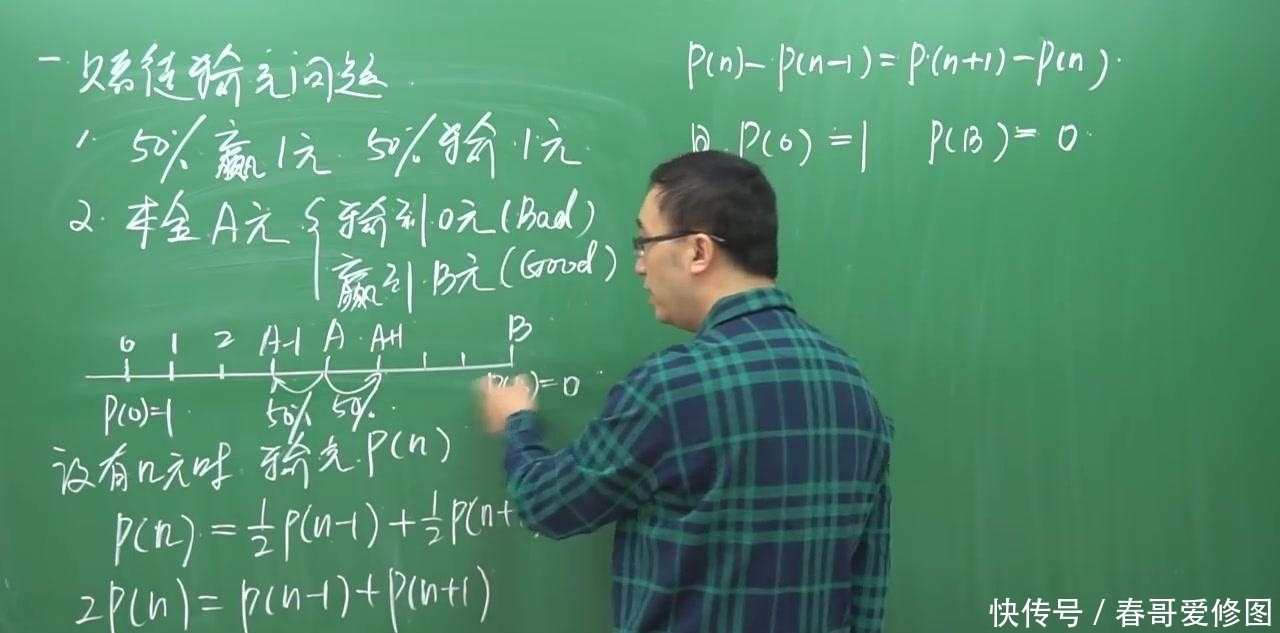 一 赌徒输光问题
1. 50% 赢1元 50% 输1元
2. 本金A元 { 输到0元(Bad)
赢到B元(Good)
0 1 2 A-1 A A+1 B
P(0)=1 50% 50% =0
设有n元时 输光P(n)
P(n)=½P(n-1)+½P(n+
2P(n)=P(n-1)+P(n+1)
P(n)-P(n-1)=P(n+1)-P(n)
P(0)=1 P(B)=0
快传号 / 春哥爱修图